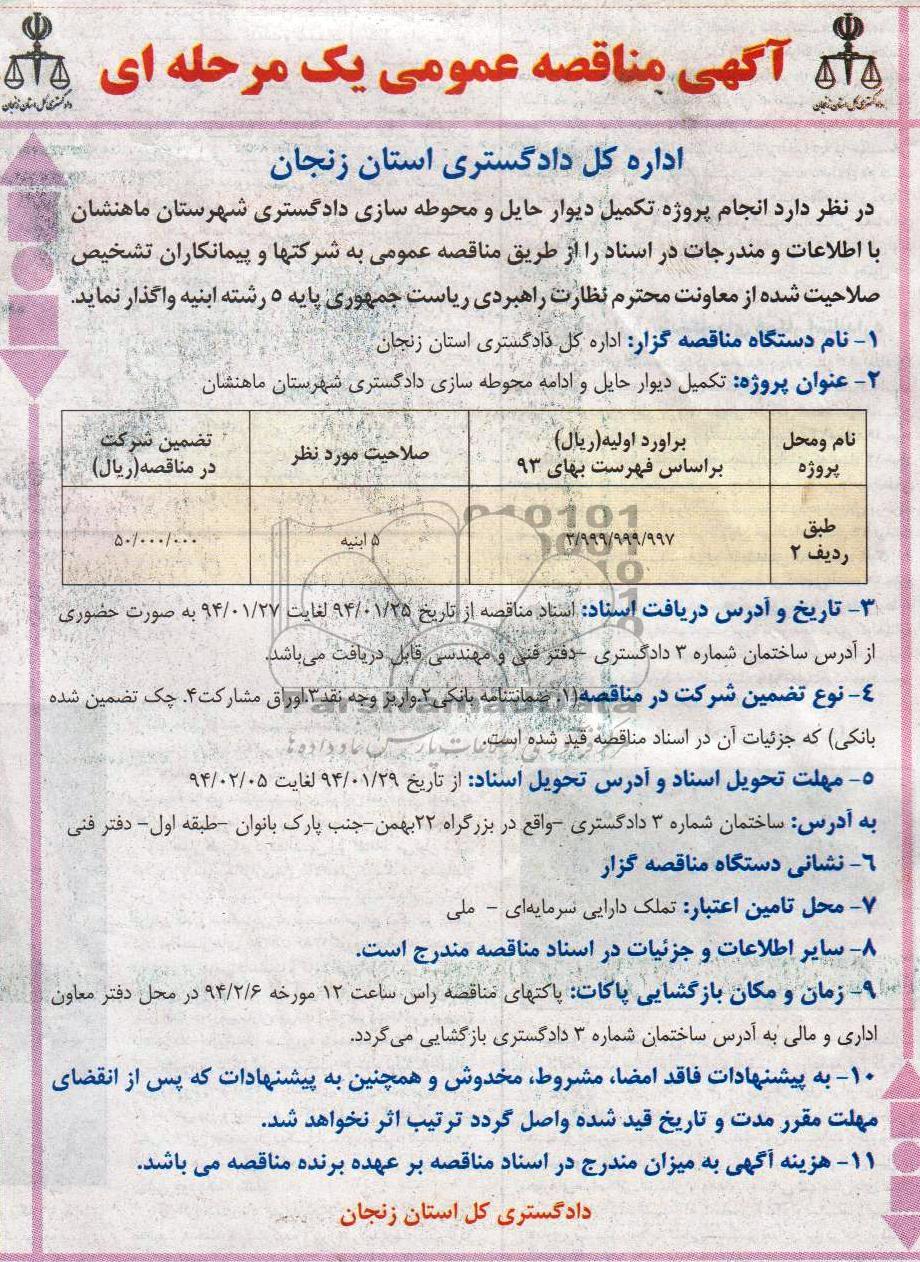 آگهی مناقصه عمومی یک مرحله ای
دادگستری کل استان زنجان
دادگستری کل استان زنجان
اداره کل دادگستری استان زنجان
در نظر دارد انجام پروژه تکمیل دیوار حایل و محوطه سازی دادگستری شهرستان ماهنشان
با اطلاعات و مندرجات در اسناد را از طریق مناقصه عمومی به شرکتها و پیمانکاران تشخیص
صلاحیت شده از معاونت محترم نظارت راهبردی ریاست جمهوری پایه ۵ رشته ابنیه واگذار نماید.
۱- نام دستگاه مناقصه گزار: اداره کل دادگستری استان زنجان
۲- عنوان پروژه: تکمیل دیوار حایل و ادامه محوطه سازی دادگستری شهرستان ماهنشان
نام ومحل پروژه
براورد اولیه(ریال) براساس فهرست بهای ۹۳
صلاحیت مورد نظر
تضمین شرکت در مناقصه(ریال)
طبق ردیف ۲
۲/۹۹۹/۹۹۹/۹۹۷
۵ ابنیه
۵۰/۰۰۰/۰۰۰
۳- تاریخ و آدرس دریافت اسناد: اسناد مناقصه از تاریخ ۹۴/۰۱/۲۵ لغایت ۹۴/۰۱/۲۷ به صورت حضوری
از آدرس ساختمان شماره ۳ دادگستری -دفتر فنی و مهندسی قابل دریافت می‌باشد.
۴- نوع تضمین شرکت در مناقصه(۱. ضمانتنامه بانکی ۲.واریز وجه نقد۳.اوراق مشارکت۴. چک تضمین شده
بانکی) که جزئیات آن در اسناد مناقصه قید شده است.
۵- مهلت تحویل اسناد و آدرس تحویل اسناد: از تاریخ ۹۴/۰۱/۲۹ لغایت ۹۴/۰۲/۰۵
به آدرس: ساختمان شماره ۳ دادگستری -واقع در بزرگراه ۲۲بهمن-جنب پارک بانوان -طبقه اول- دفتر فنی
۶- نشانی دستگاه مناقصه گزار
۷- محل تامین اعتبار: تملک دارایی سرمایه‌ای - ملی
۸- سایر اطلاعات و جزئیات در اسناد مناقصه مندرج است.
۹- زمان و مکان بازگشایی پاکات: پاکتهای مناقصه راس ساعت ۱۲ مورخه ۹۴/۲/۶ در محل دفتر معاون
اداری و مالی به آدرس ساختمان شماره ۳ دادگستری بازگشایی می‌گردد.
۱۰- به پیشنهادات فاقد امضا، مشروط، مخدوش و همچنین به پیشنهادات که پس از انقضای
مهلت مقرر مدت و تاریخ قید شده واصل گردد ترتیب اثر نخواهد شد.
۱۱- هزینه آگهی به میزان مندرج در اسناد مناقصه بر عهده برنده مناقصه می باشد.
دادگستری کل استان زنجان